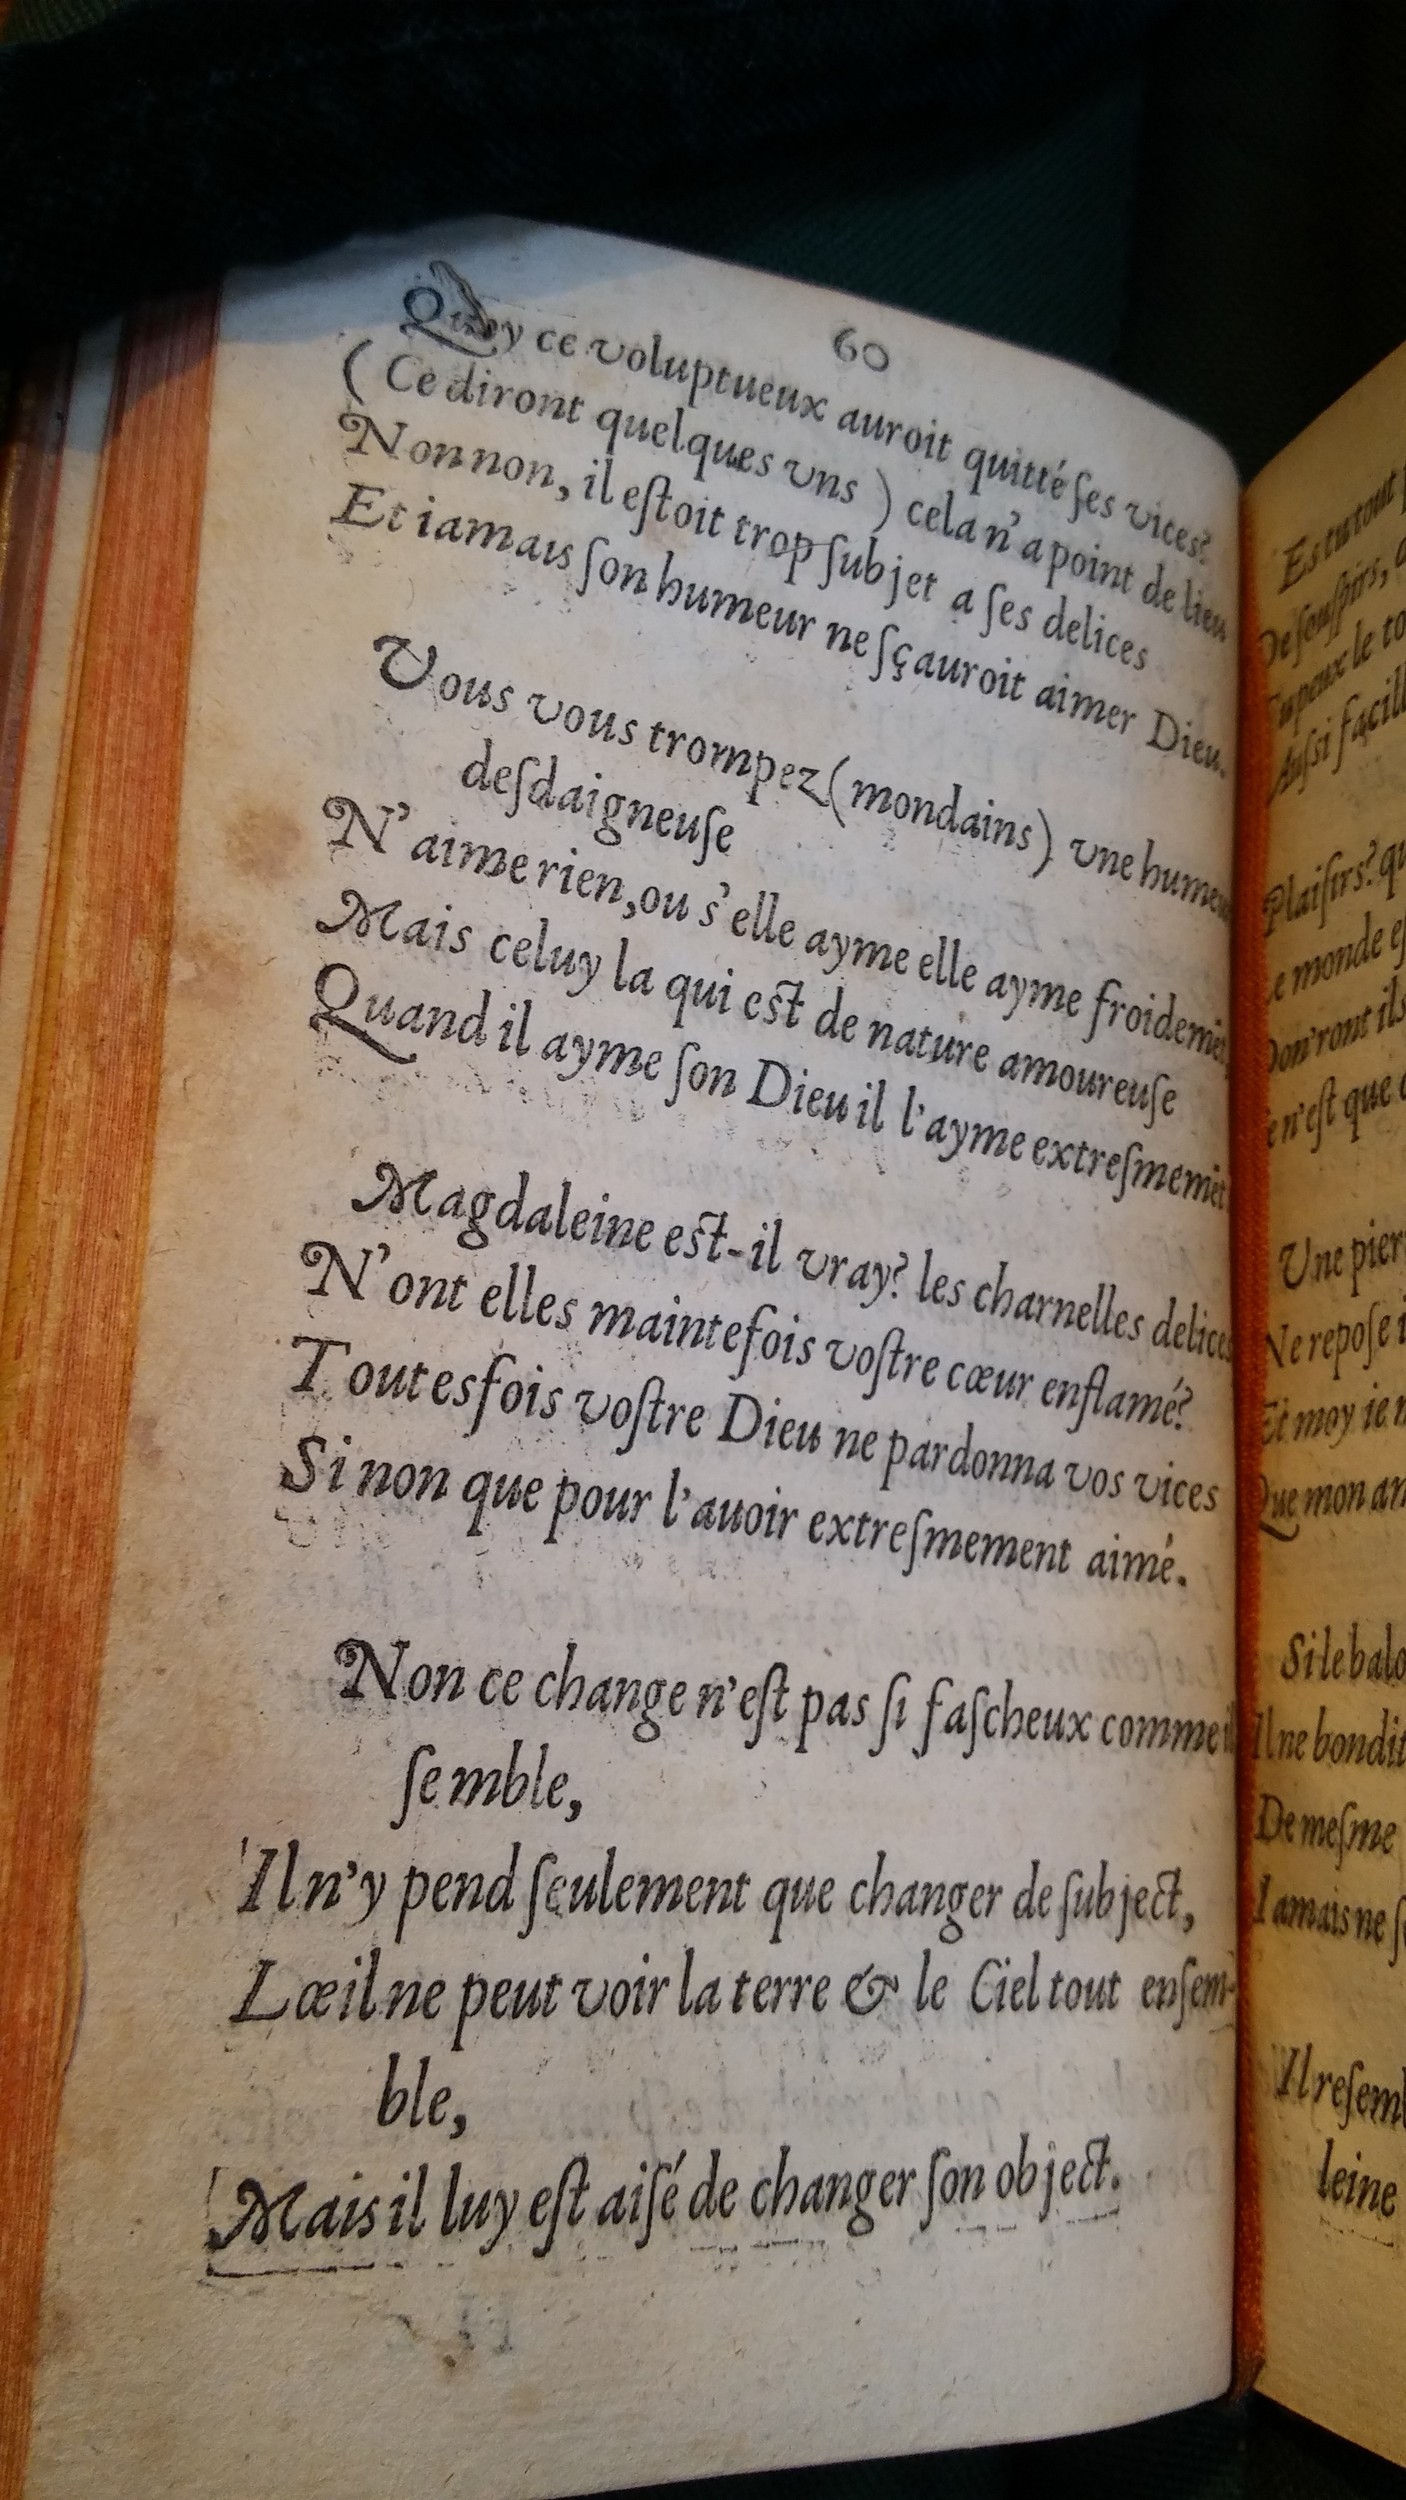 60
Quoy ce voluptueux auroit quitté ſes vices?
( Ce diront quelques vns ) cela n'a point de lieu
Non non, il eſtoit trop ſubjet a ſes delices
Et iamais ſon humeur ne ſçauroit aimer Dieu.
Vous vous trompez (mondains) vne humeur
deſdaigneuſe
N'aime rien, ou s'elle ayme elle ayme froidemēt,
Mais celuy la qui eſt de nature amoureuſe
Quand il ayme ſon Dieu il l'ayme extreſmemēt
Magdaleine eſt-il vray? les charnelles delices
N'ont elles maintefois voſtre cœur enflamé?
Toutesfois voſtre Dieu ne pardonna vos vices
Si non que pour l'auoir extreſmement aimé.
Non ce change n'eſt pas ſi faſcheux comme il
ſemble,
Il n'y pend ſeulement que changer de ſubject,
Lœil ne peut voir la terre & le Ciel tout enſem-
ble,
Mais il luy eſt aiſé de changer ſon object.
Es tu tout
De ſouſpirs,
Tu peux le
Auſsi
Plaiſirs?
Le monde
Don'ront ils
Ce n'eſt que
Une
Ne repoſe
Et moy ie
Que mon
Si le
Il ne bondit
De meſme
Iamais ne
Il
leine